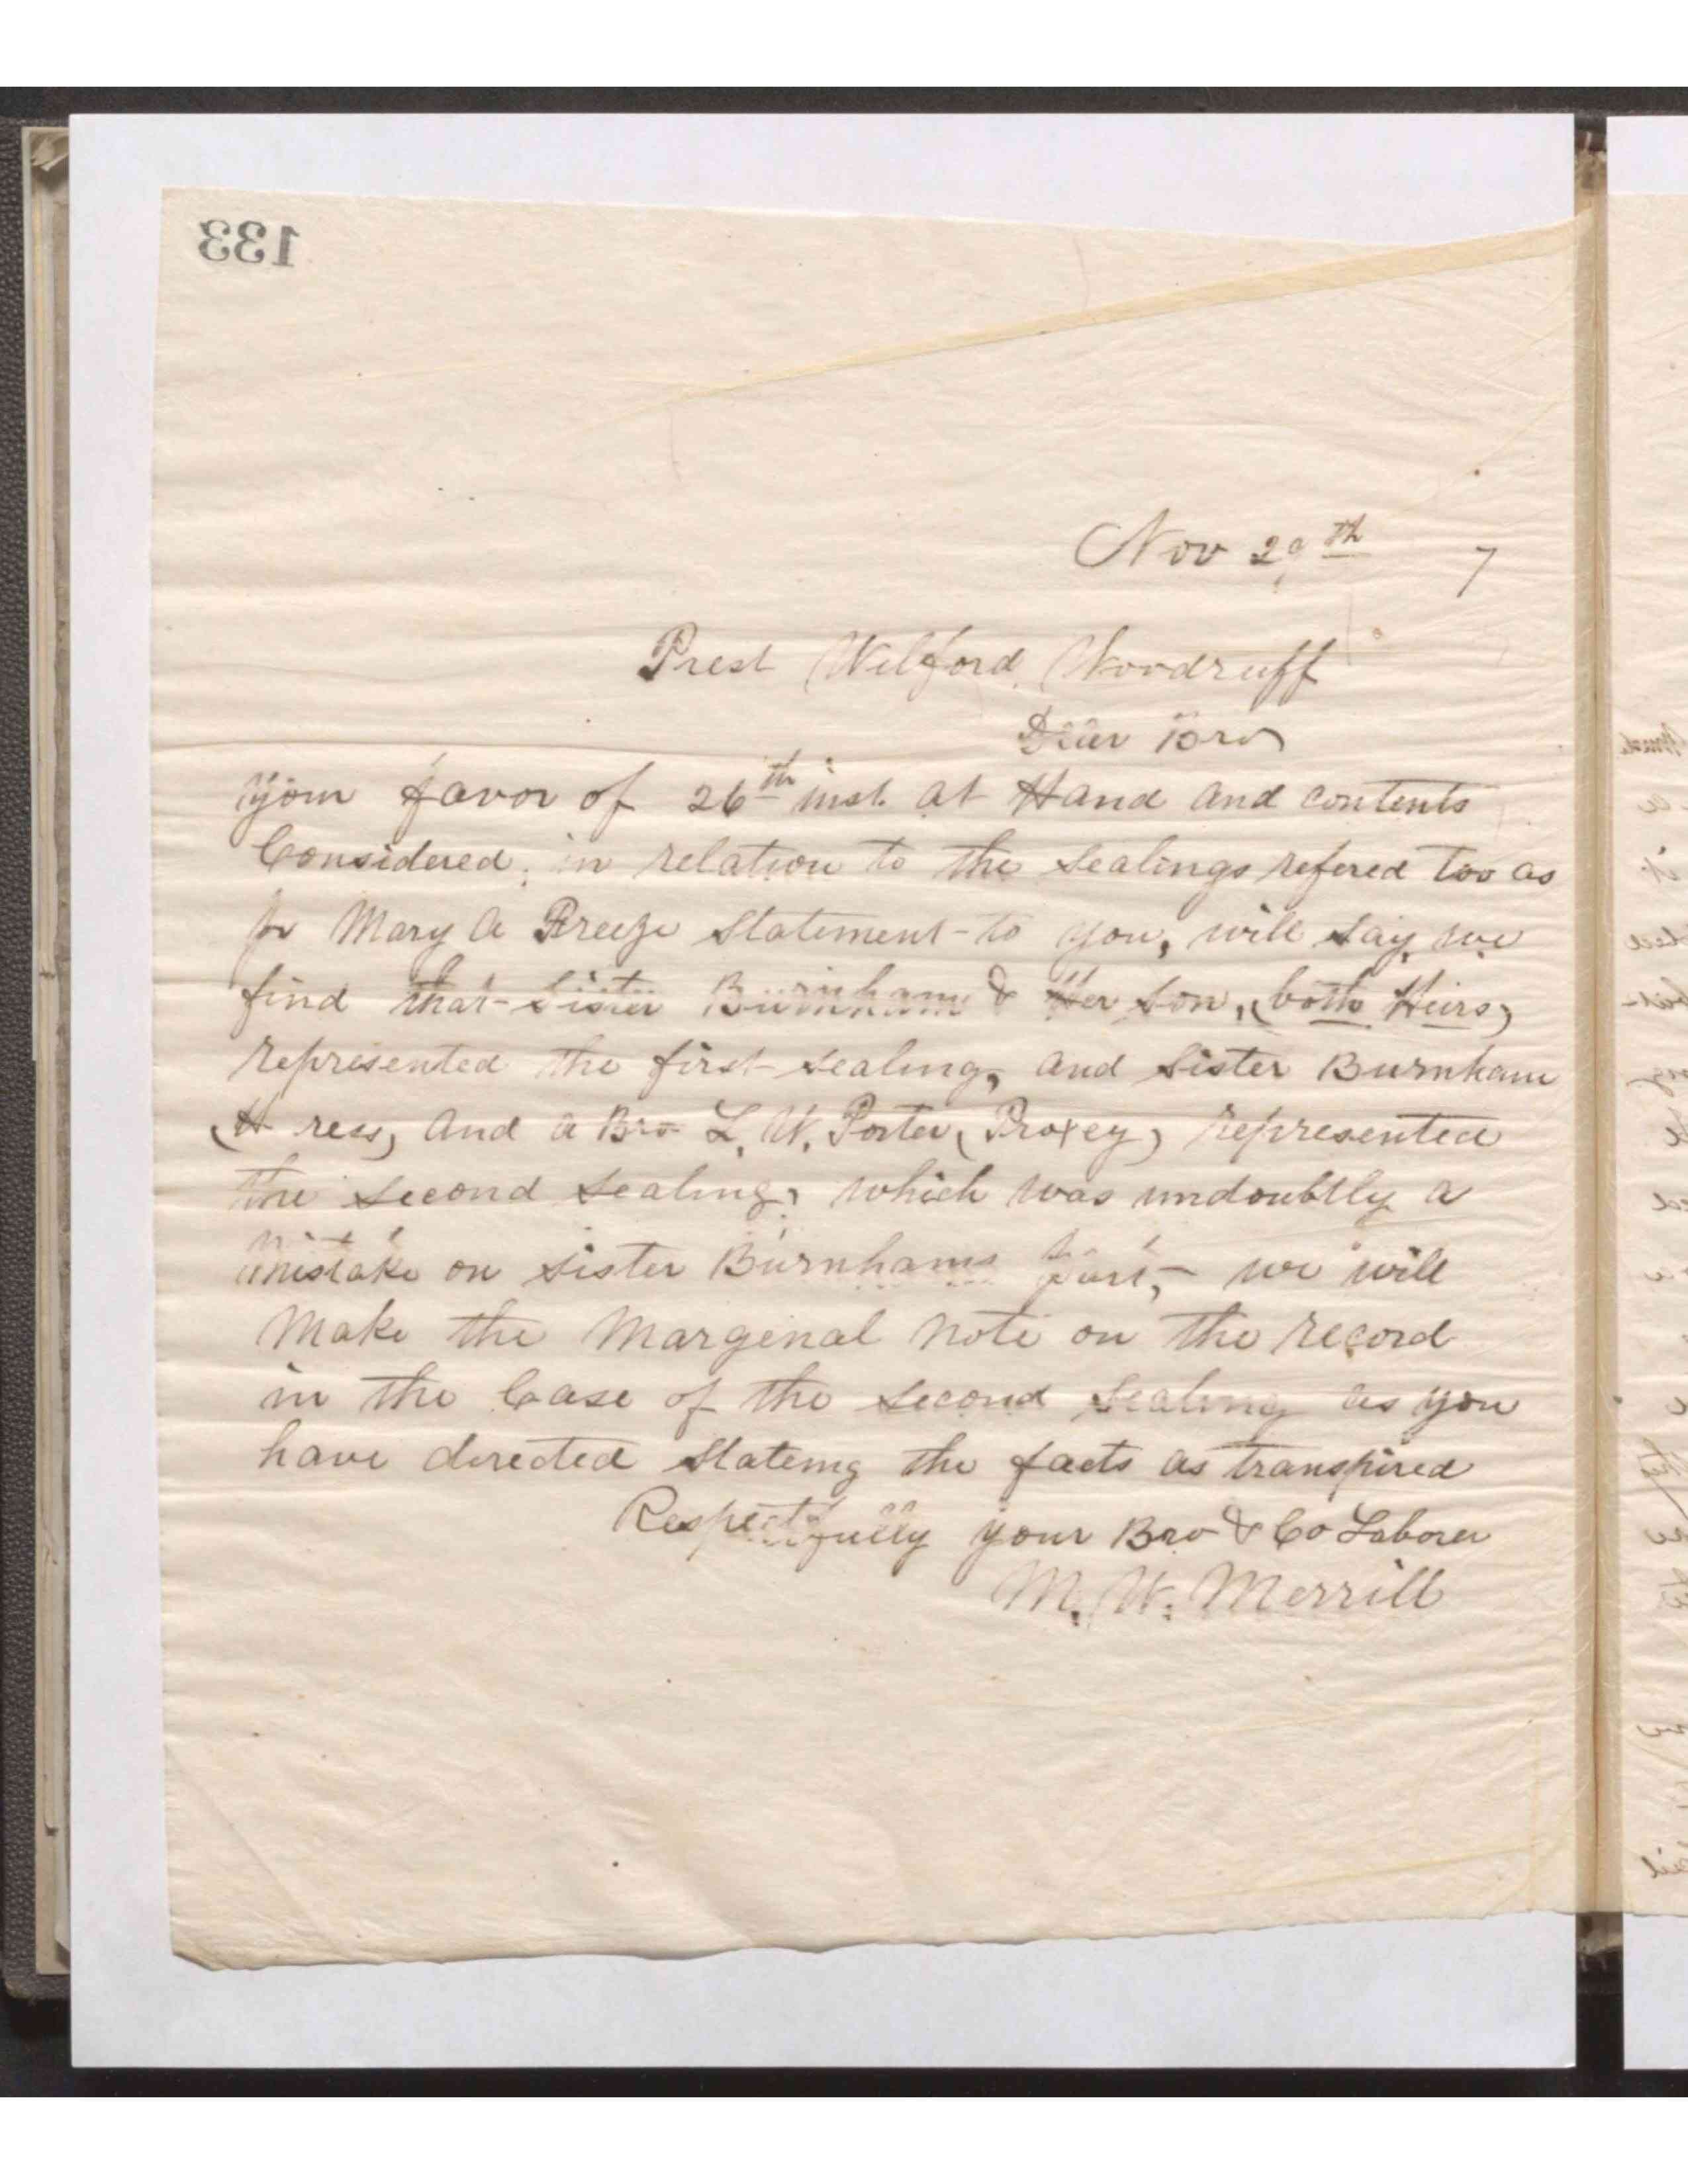 133
Nov 29th 7
Prest Wilford Woodruff
Dear Bro
Your favor of 26th inst. at Hand and contents
Considered, in relation to the Sealings refered too as
pr Mary A Freeze Statement to you, will say, we
find that Sister Burnham & Her Son, (both Heirs)
represented the first sealing, and Sister Burnham
(H ress) and a Bro L. W. Porter (Proxey) represented
the second sealing, which was undoubtly a
mistake on sister Burnhams part, we will
Make the Margenal note on the record
in the Case of the second sealing as you
have directed Stateing the facts as transpired
Respectfully your Bro & Co Laborer
M. W. Merrill